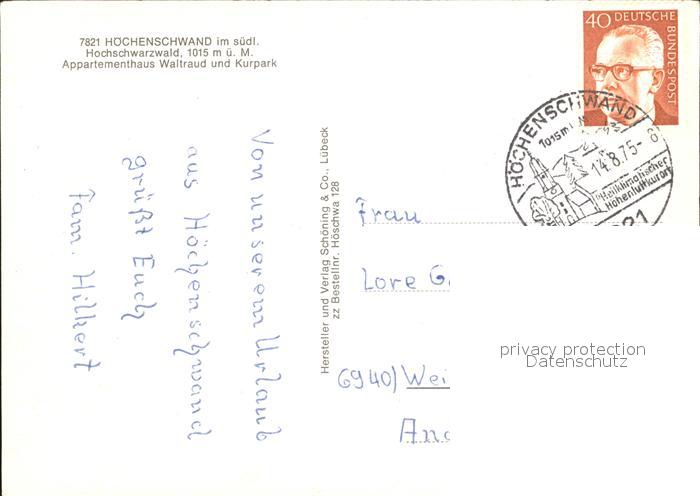 7821 HÖCHENSCHWAND im südl.
Hochschwarzwald, 1015 m ü. M.
Appartementhaus Waltraud und Kurpark
Von unserem Urlaub
aus Höchenschwand
grüßt Euch
Fam. Hilkert
Hersteller und Verlag Schöning & Co., Lübeck
zz Bestellnr. Höschwa 128
40 DEUTSCHE
BUNDESPOST
HÖCHENSCHWAND
1015 m
14.8.75-
Heilklimatischer
Höhenluftkurort
Frau
Lore G
6940) Wei
privacy protection
Datenschutz